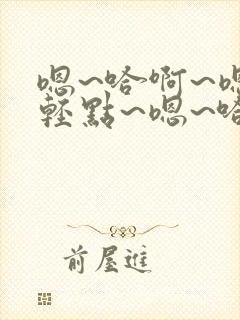 嗯~哈啊~嗯
輕點~嗯~哈
前屋進